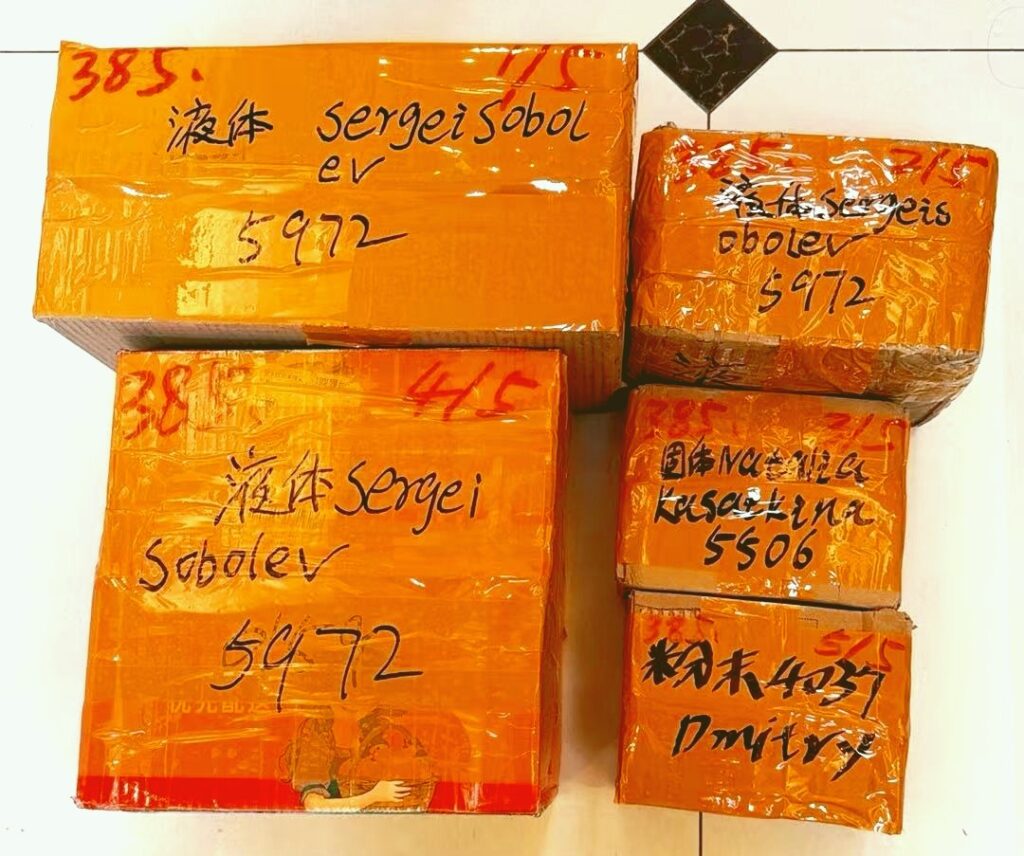 385. 1/5
液体 sergeisobol
ev
5972
385. 2/5
液体sergeis
obolev
5972
385. 4/5
液体sergei
sobolev
5972
385. 3/5
固体Natalia
Kasatkina
5506
385. 5/5
粉末4037
Dmitrye